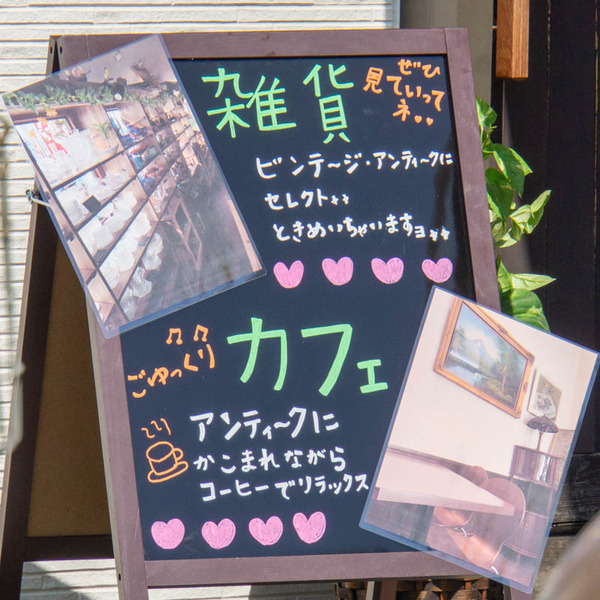 雑貨
ぜひ
見ていって
ネ
ビンテ〜ジ・アンティ〜クに
セレクト
ときめいちゃいますョ
ごゆっくり
カフェ
アンティ〜クに
かこまれながら
コーヒーでリラックス